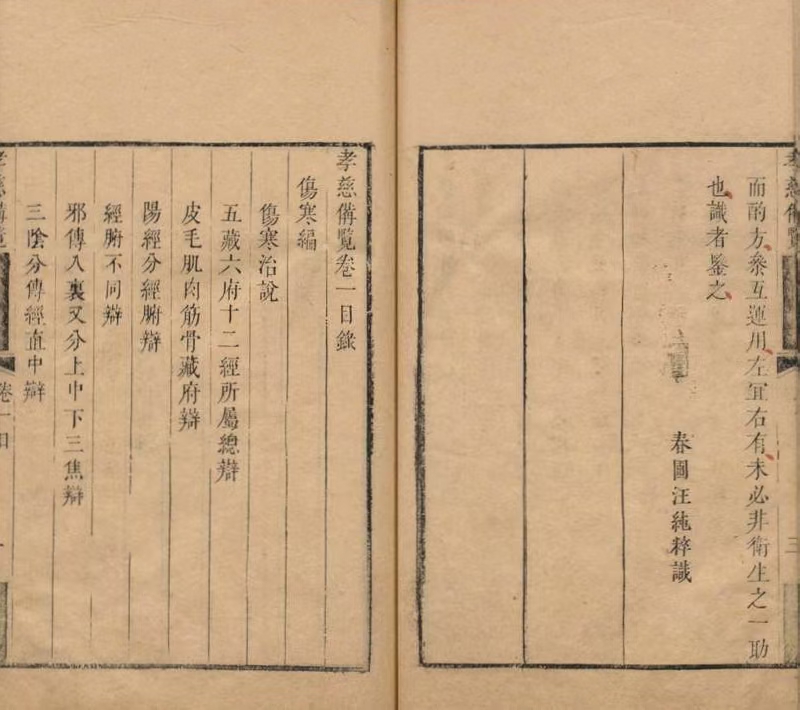 孝慈備覽
三
而酌方叅互運用左宜右有未必非衛生之一助
也識者鑒之
春圃汪純粹識
孝慈備覽卷一目錄
傷寒編
傷寒治說
五藏六府十二經所屬總辯
皮毛肌肉筋骨藏府辯
陽經分經腑辯
經腑不同辯
邪傳入裏又分上中下三焦辯
三陰分傳經直中辯
孝慈備覽
卷一目
一